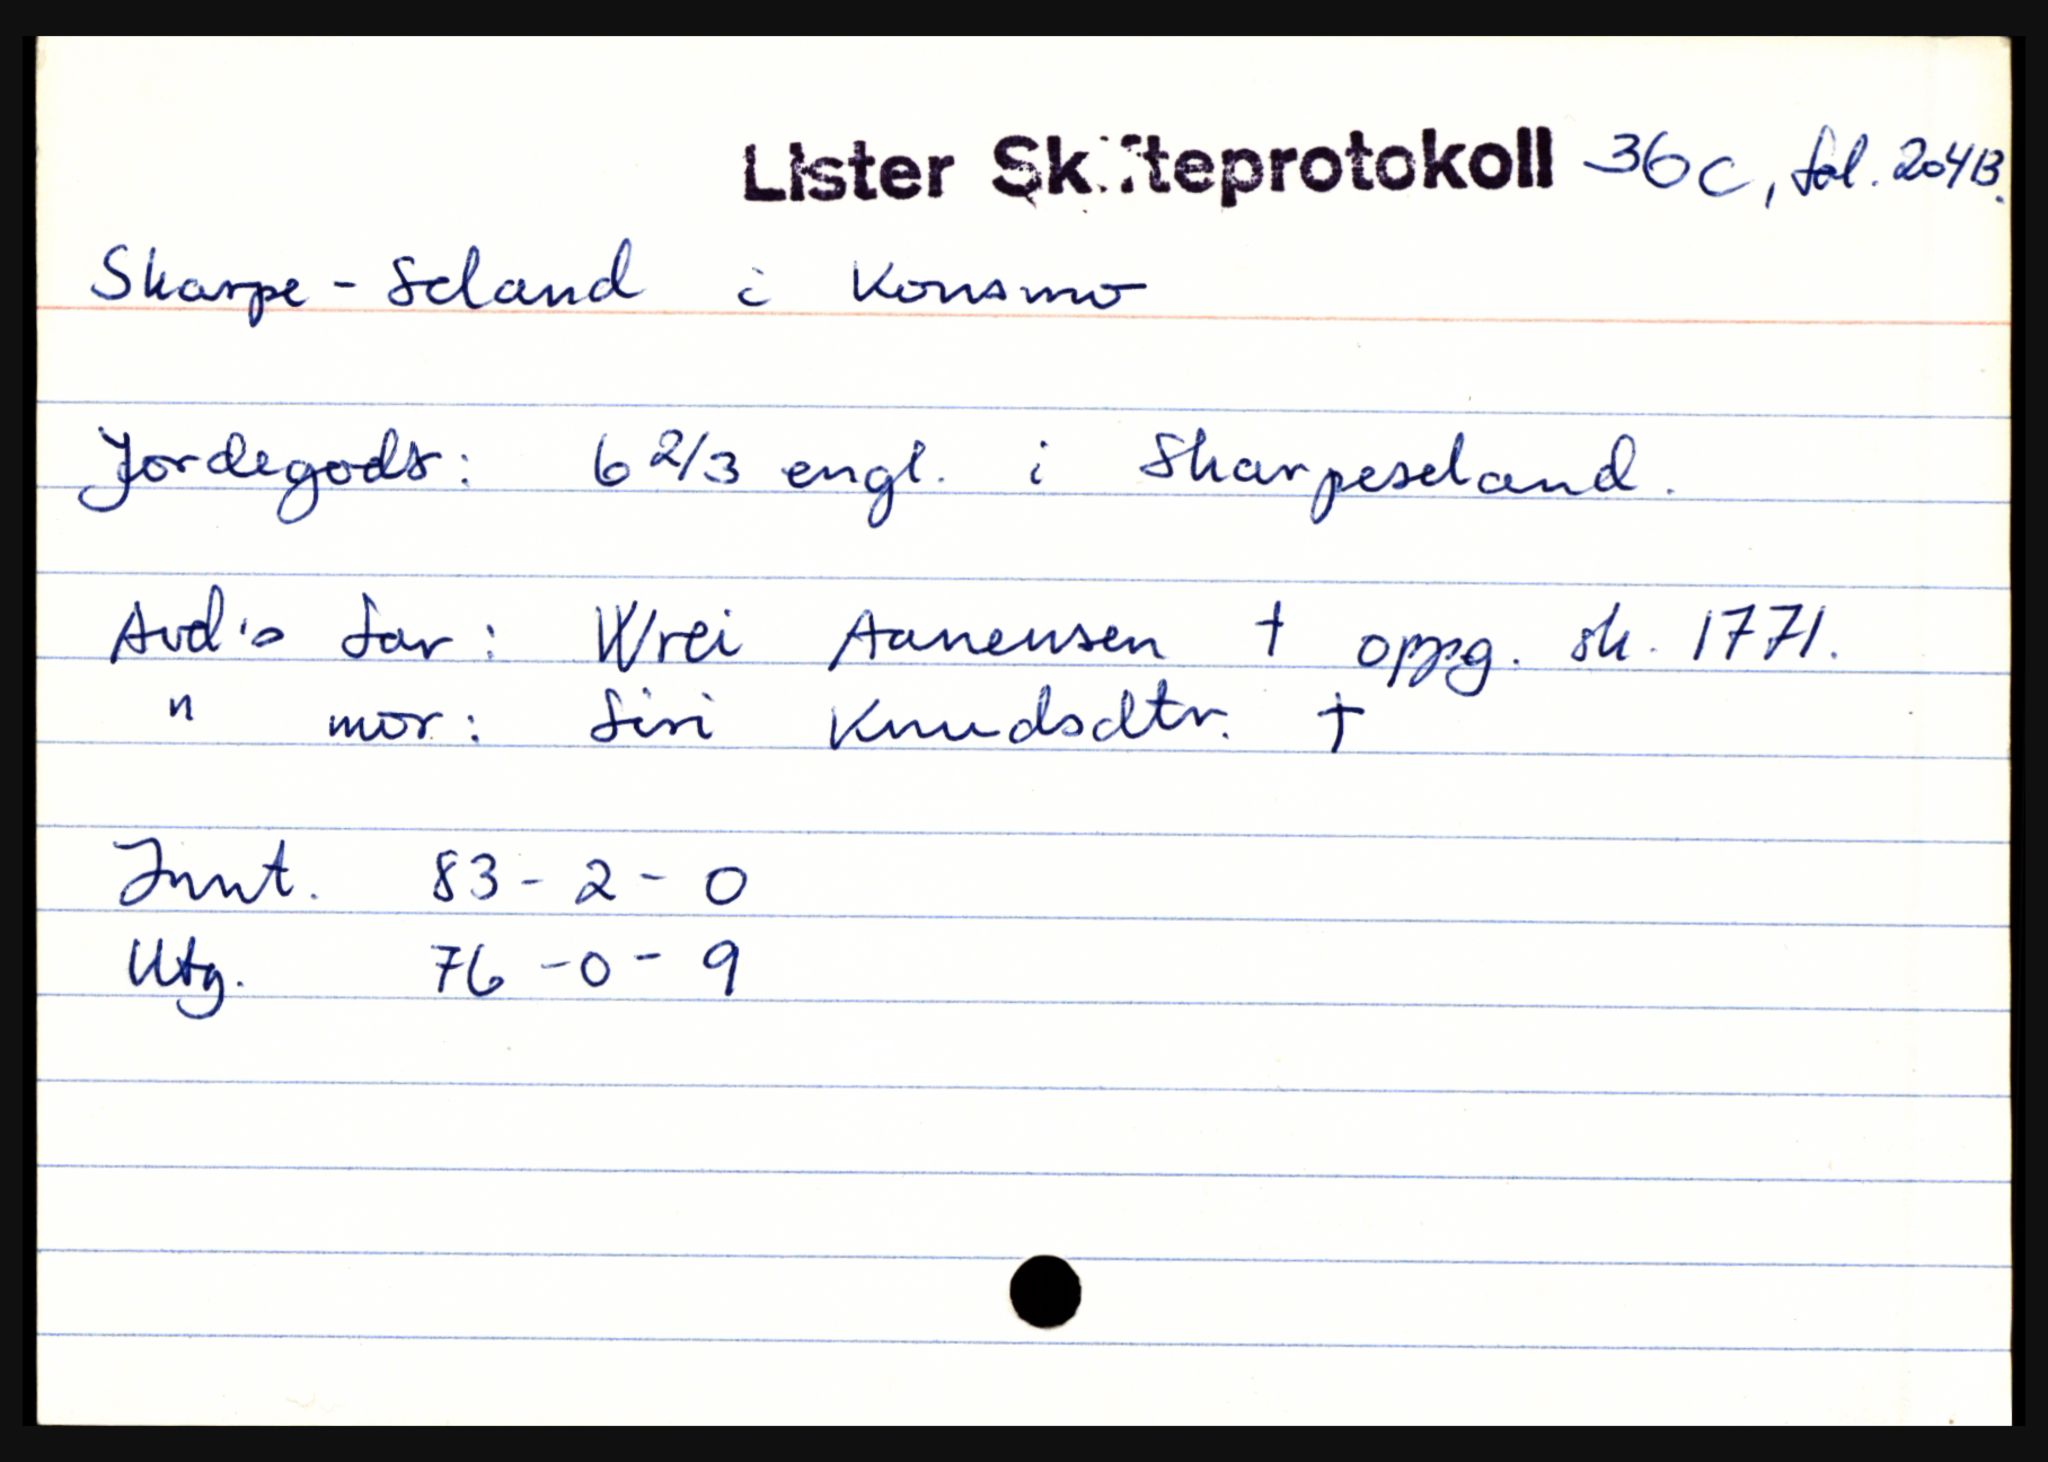 Lister Skifteprotokoll 36c, fol. 204B.
Skarpe-Seland i Konsmo
Jordegods: 6 2/3 engl. i Skarpeseland.
Avd's far: Wrei Aanensen † oppg. sk. 1771.
" mor: Siri Knudsdtr. †
Innt. 83 - 2 - 0
Utg. 76 - 0 - 9